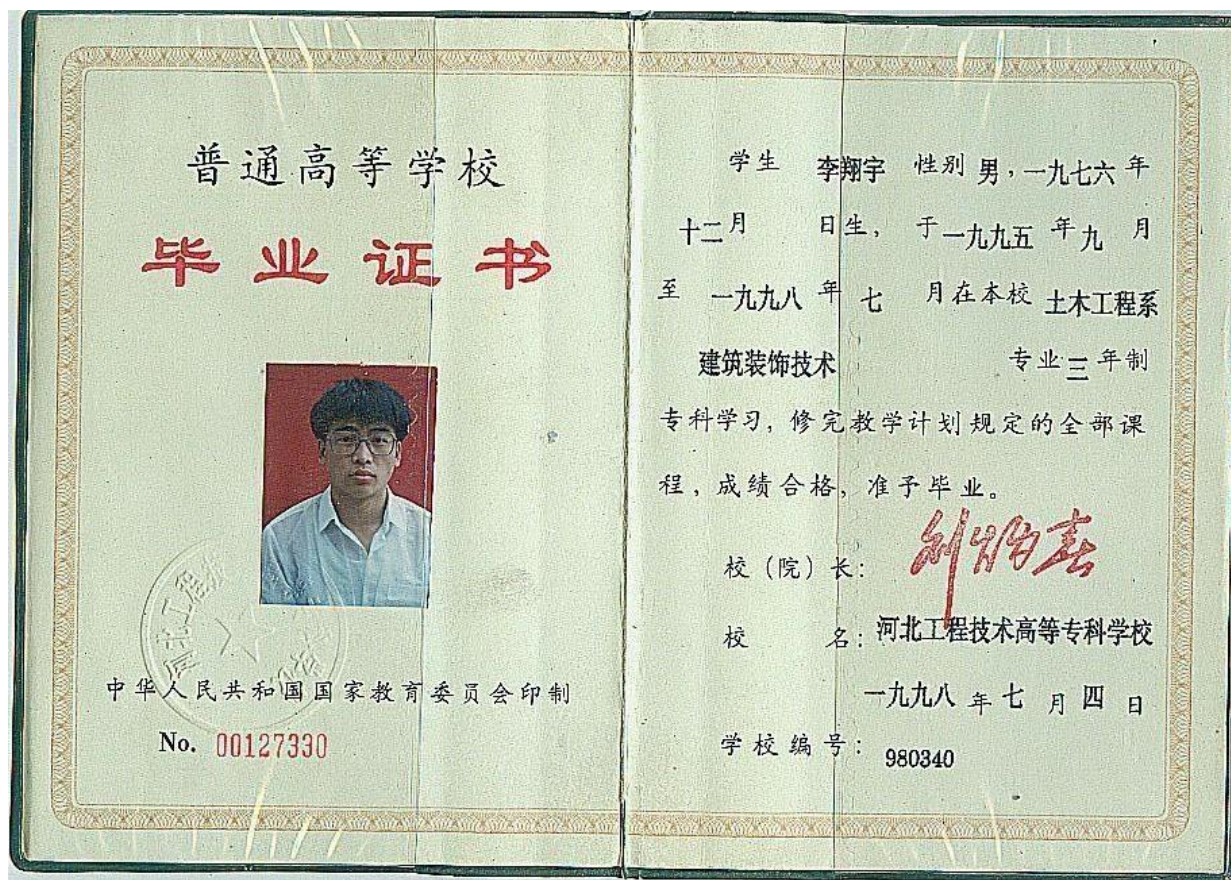 普通高等学校
毕业证书
中华人民共和国国家教育委员会印制
No. 00127330
学生 李翔宇 性别 男，一九七六 年
十二月 日生，于一九九五 年九 月
至 一九九八 年 七 月在本校 土木工程系
建筑装饰技术 专业 三 年制
专科学习，修完教学计划规定的全部课
程，成绩合格，准予毕业。
校（院）长：
校 名：河北工程技术高等专科学校
一九九八 年 七 月 四 日
学校编号：980340